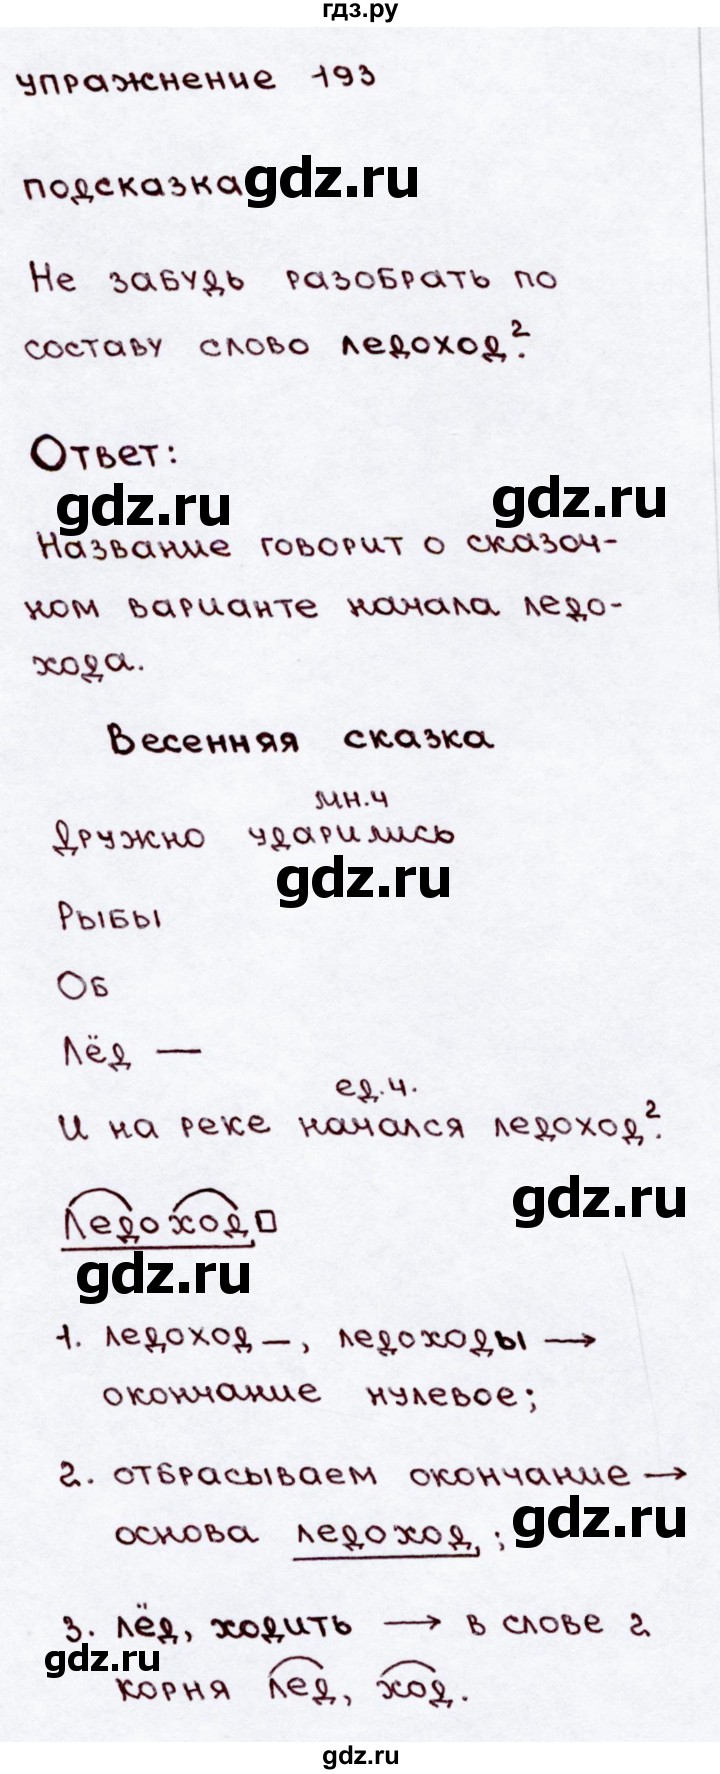 гдз.ру
упражнение 193
подсказка gdz.ru
Не забудь разобрать по
составу слово ледоход².
Ответ:
gdz.ru gdz.ru
Название говорит о сказоч-
ном варианте начала ледо-
хода.
Весенняя сказка
мн.ч
Дружно ударились
gdz.ru
Рыбы
Об
Лёд —
ед.ч.
И на реке начался ледоход².
gdz.ru
ледоход
gdz.ru
1. ледоход_, ледоходы →
окончание нулевое;
2. отбрасываем окончание →
gdz.ru
основа ледоход ;
3. лёд, ходить → в слове 2
gdz.ru
корня лед, ход.
gdz.ru